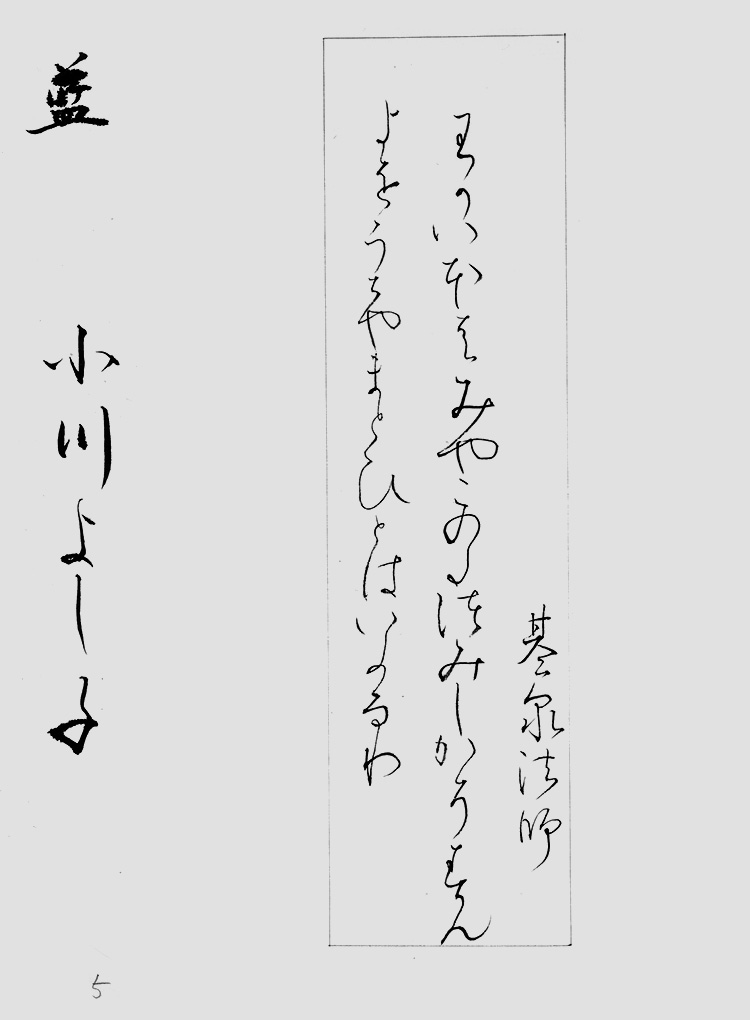 基泉法師
わかいほはみやこのたつみしかそすむ
よをうちやまとひとはいふなり
藍 小川よし子
5